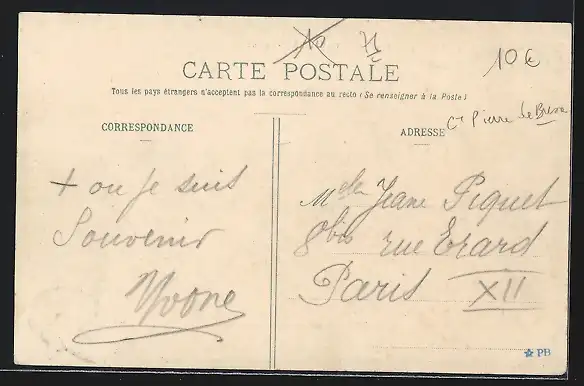 10 75
10€
CARTE POSTALE
Tous les pays étrangers n'acceptent pas la correspondance au recto (Se renseigner à la Poste)
CORRESPONDANCE
ADRESSE
Cne Pierre de Bresse
+ ou je suis
Souvenir
Yvone
Melle Jeane Piquet
8bis rue Erard
Paris XII
PB